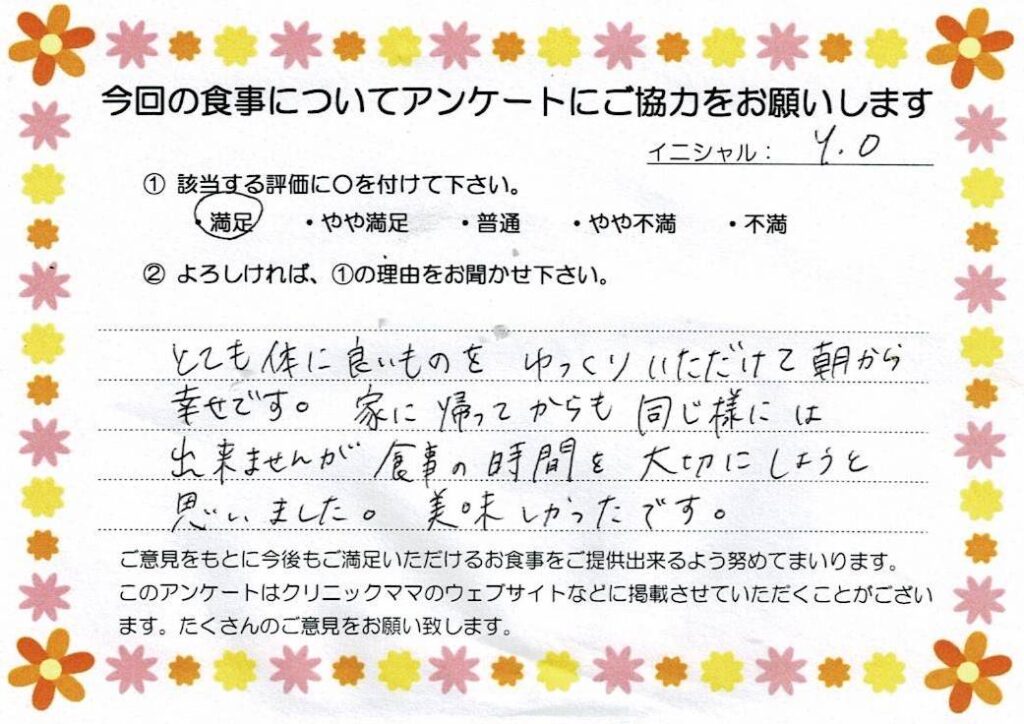 今回の食事についてアンケートにご協力をお願いします
イニシャル： Y.O
① 該当する評価に○を付けて下さい。
・満足 ・やや満足 ・普通 ・やや不満 ・不満
② よろしければ、①の理由をお聞かせ下さい。
とても体に良いものを ゆっくりいただけて朝から
幸せです。 家に帰ってからも同じ様には
出来ませんが 食事の時間を 大切にしようと
思いました。 美味しかったです。
ご意見をもとに今後もご満足いただけるお食事をご提供出来るよう努めてまいります。
このアンケートはクリニックママのウェブサイトなどに掲載させていただくことがござい
ます。たくさんのご意見をお願い致します。